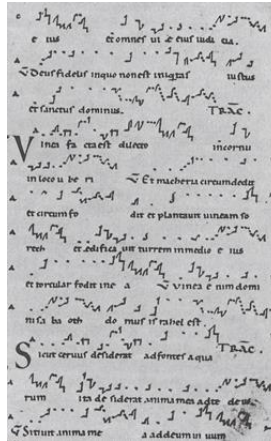 e ius et omnes ui e eius iudi cia.
V Deus fidelis in quo non est iniqtas iustus
et sanctus dominus. TRAC.
Vinea fa cta est dilecto in cornu
in loco u be ri V Et maceria circumdedit
et circum fo dit et plantauit uineam so
rech et edifica uit turrem in medio e ius
et torcular fodit in e a V Vinea e nim domi
ni sa ba oth do mus israhel est.
Sicut ceruus desiderat ad fontes a qua TRAC.
rum ita de siderat anima mea ad te deus
V Sitiuit anima me a ad deum ui uum